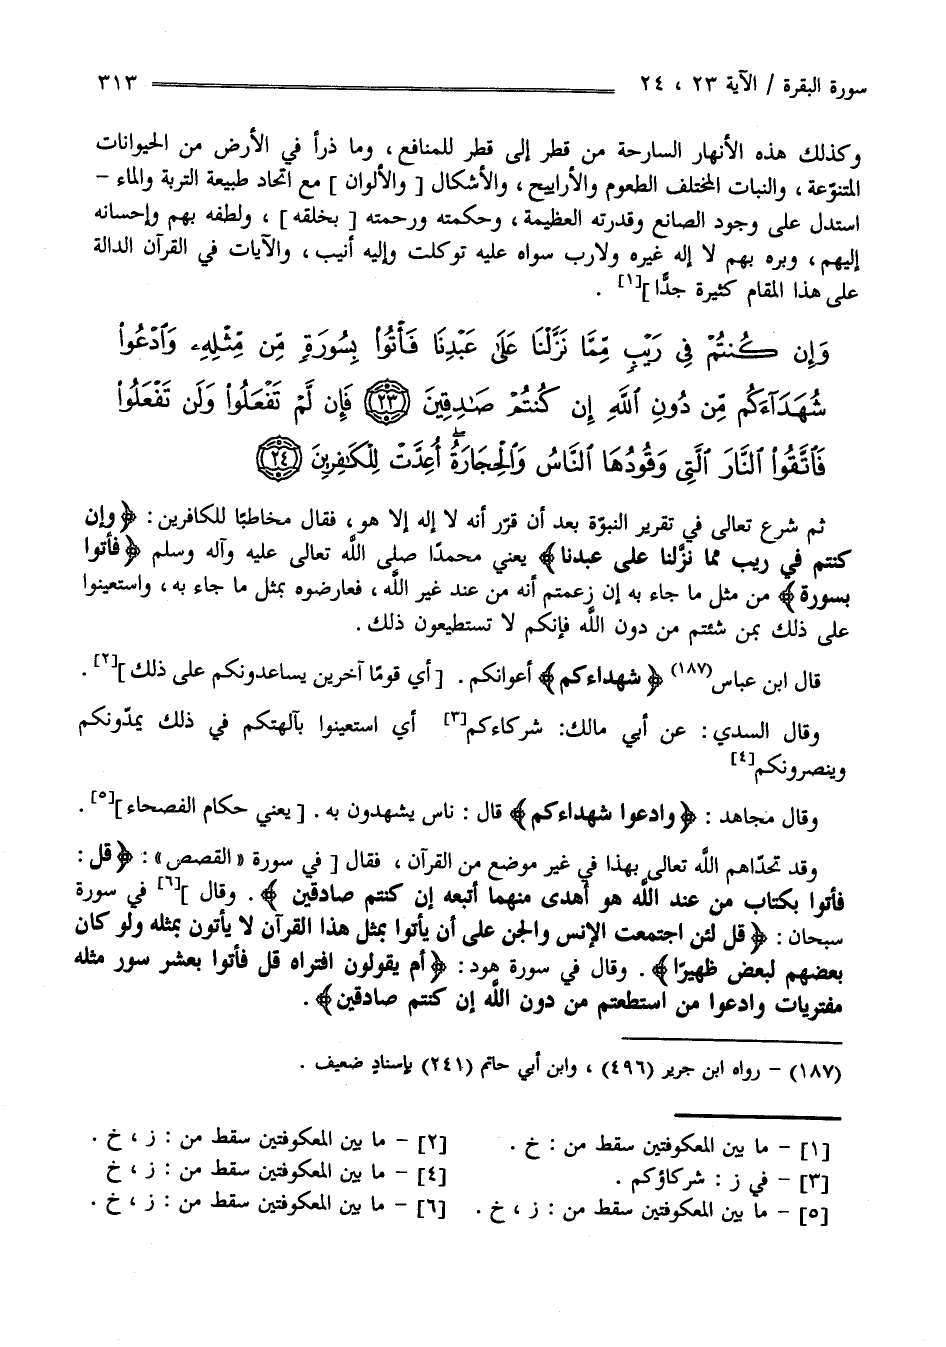 سورة البقرة / الآية ٢٣ ، ٢٤ ٣١٣
وكذلك هذه الأنهار السارحة من قطر إلى قطر للمنافع ، وما ذرأ في الأرض من الحيوانات
المتنوّعة ، والنبات المختلف الطعوم والأراييح ، والأشكال [ والألوان ] مع اتحاد طبيعة التربة والماء –
استدل على وجود الصانع وقدرته العظيمة ، وحكمته ورحمته [ بخلقه ] ، ولطفه بهم وإحسانه
إليهم ، وبره بهم لا إله غيره ولارب سواه عليه توكلت وإليه أنيب ، والآيات في القرآن الدالة
على هذا المقام كثيرة جدًّا ][١] .
وَإِن كُنتُمْ فِى رَيْبٍ مِّمَّا نَزَّلْنَا عَلَىٰ عَبْدِنَا فَأْتُوا۟ بِسُورَةٍ مِّن مِّثْلِهِۦ وَٱدْعُوا۟
شُهَدَآءَكُم مِّن دُونِ ٱللَّهِ إِن كُنتُمْ صَـٰدِقِينَ ﴿٢٣﴾ فَإِن لَّمْ تَفْعَلُوا۟ وَلَن تَفْعَلُوا۟
فَٱتَّقُوا۟ ٱلنَّارَ ٱلَّتِى وَقُودُهَا ٱلنَّاسُ وَٱلْحِجَارَةُ ۖ أُعِدَّتْ لِلْكَـٰفِرِينَ ﴿٢٤﴾
ثم شرع تعالى في تقرير النبوّة بعد أن قرّر أنه لا إله إلا هو ، فقال مخاطبًا للكافرين : ﴿ وإن
كنتم في ريب مما نزَّلنا على عبدنا ﴾ يعني محمدًا صلى اللَّه تعالى عليه وآله وسلم ﴿ فأتوا
بسورة ﴾ من مثل ما جاء به إن زعمتم أنه من عند غير اللَّه ، فعارضوه بمثل ما جاء به ، واستعينوا
على ذلك بمن شئتم من دون اللَّه فإنكم لا تستطيعون ذلك .
قال ابن عباس(١٨٧) ﴿ شهداءكم ﴾ أعوانكم . [ أي قومًا آخرين يساعدونكم على ذلك ][٢] .
وقال السدي : عن أبي مالك: شركاءكم[٣] أي استعينوا بآلهتكم في ذلك يمدّونكم
وينصرونكم[٤]
وقال مجاهد : ﴿ وادعوا شهداءكم ﴾ قال : ناس يشهدون به . [ يعني حكام الفصحاء ][٥] .
وقد تحدّاهم اللَّه تعالى بهذا في غير موضع من القرآن ، فقال [ في سورة « القصص » : ﴿ قل :
فأتوا بكتاب من عند اللَّه هو أهدى منهما أتبعه إن كنتم صادقين ﴾ . وقال ][٦] في سورة
سبحان : ﴿ قل لئن اجتمعت الإنس والجن على أن يأتوا بمثل هذا القرآن لا يأتون بمثله ولو كان
بعضهم لبعض ظهيرًا ﴾ . وقال في سورة هود : ﴿ أم يقولون افتراه قل فأتوا بعشر سور مثله
مفتريات وادعوا من استطعتم من دون اللَّه إن كنتم صادقين ﴾ .
(١٨٧) – رواه ابن جرير (٤٩٦) ، وابن أبي حاتم (٢٤١) بإسنادٍ ضعيف .
[١] – ما بين المعكوفتين سقط من : خ . [٢] – ما بين المعكوفتين سقط من : ز ، خ .
[٣] – في ز : شركاؤكم . [٤] – ما بين المعكوفتين سقط من : ز ، خ
[٥] – ما بين المعكوفتين سقط من : ز ، خ . [٦] – ما بين المعكوفتين سقط من : ز ، خ .